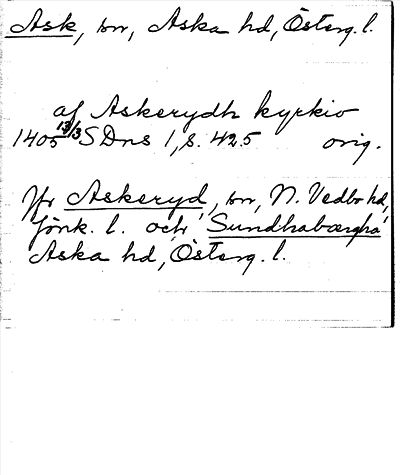 Ask, sn, Aska hd, Österg. l.
af Askerydh kyrkio
1405 13/3 SDns 1, s. 425 orig.
Jfr Askeryd, sn, N. Vedbo hd,
Jönk. l. och Sundhabærgha
Aska hd, Österg. l.